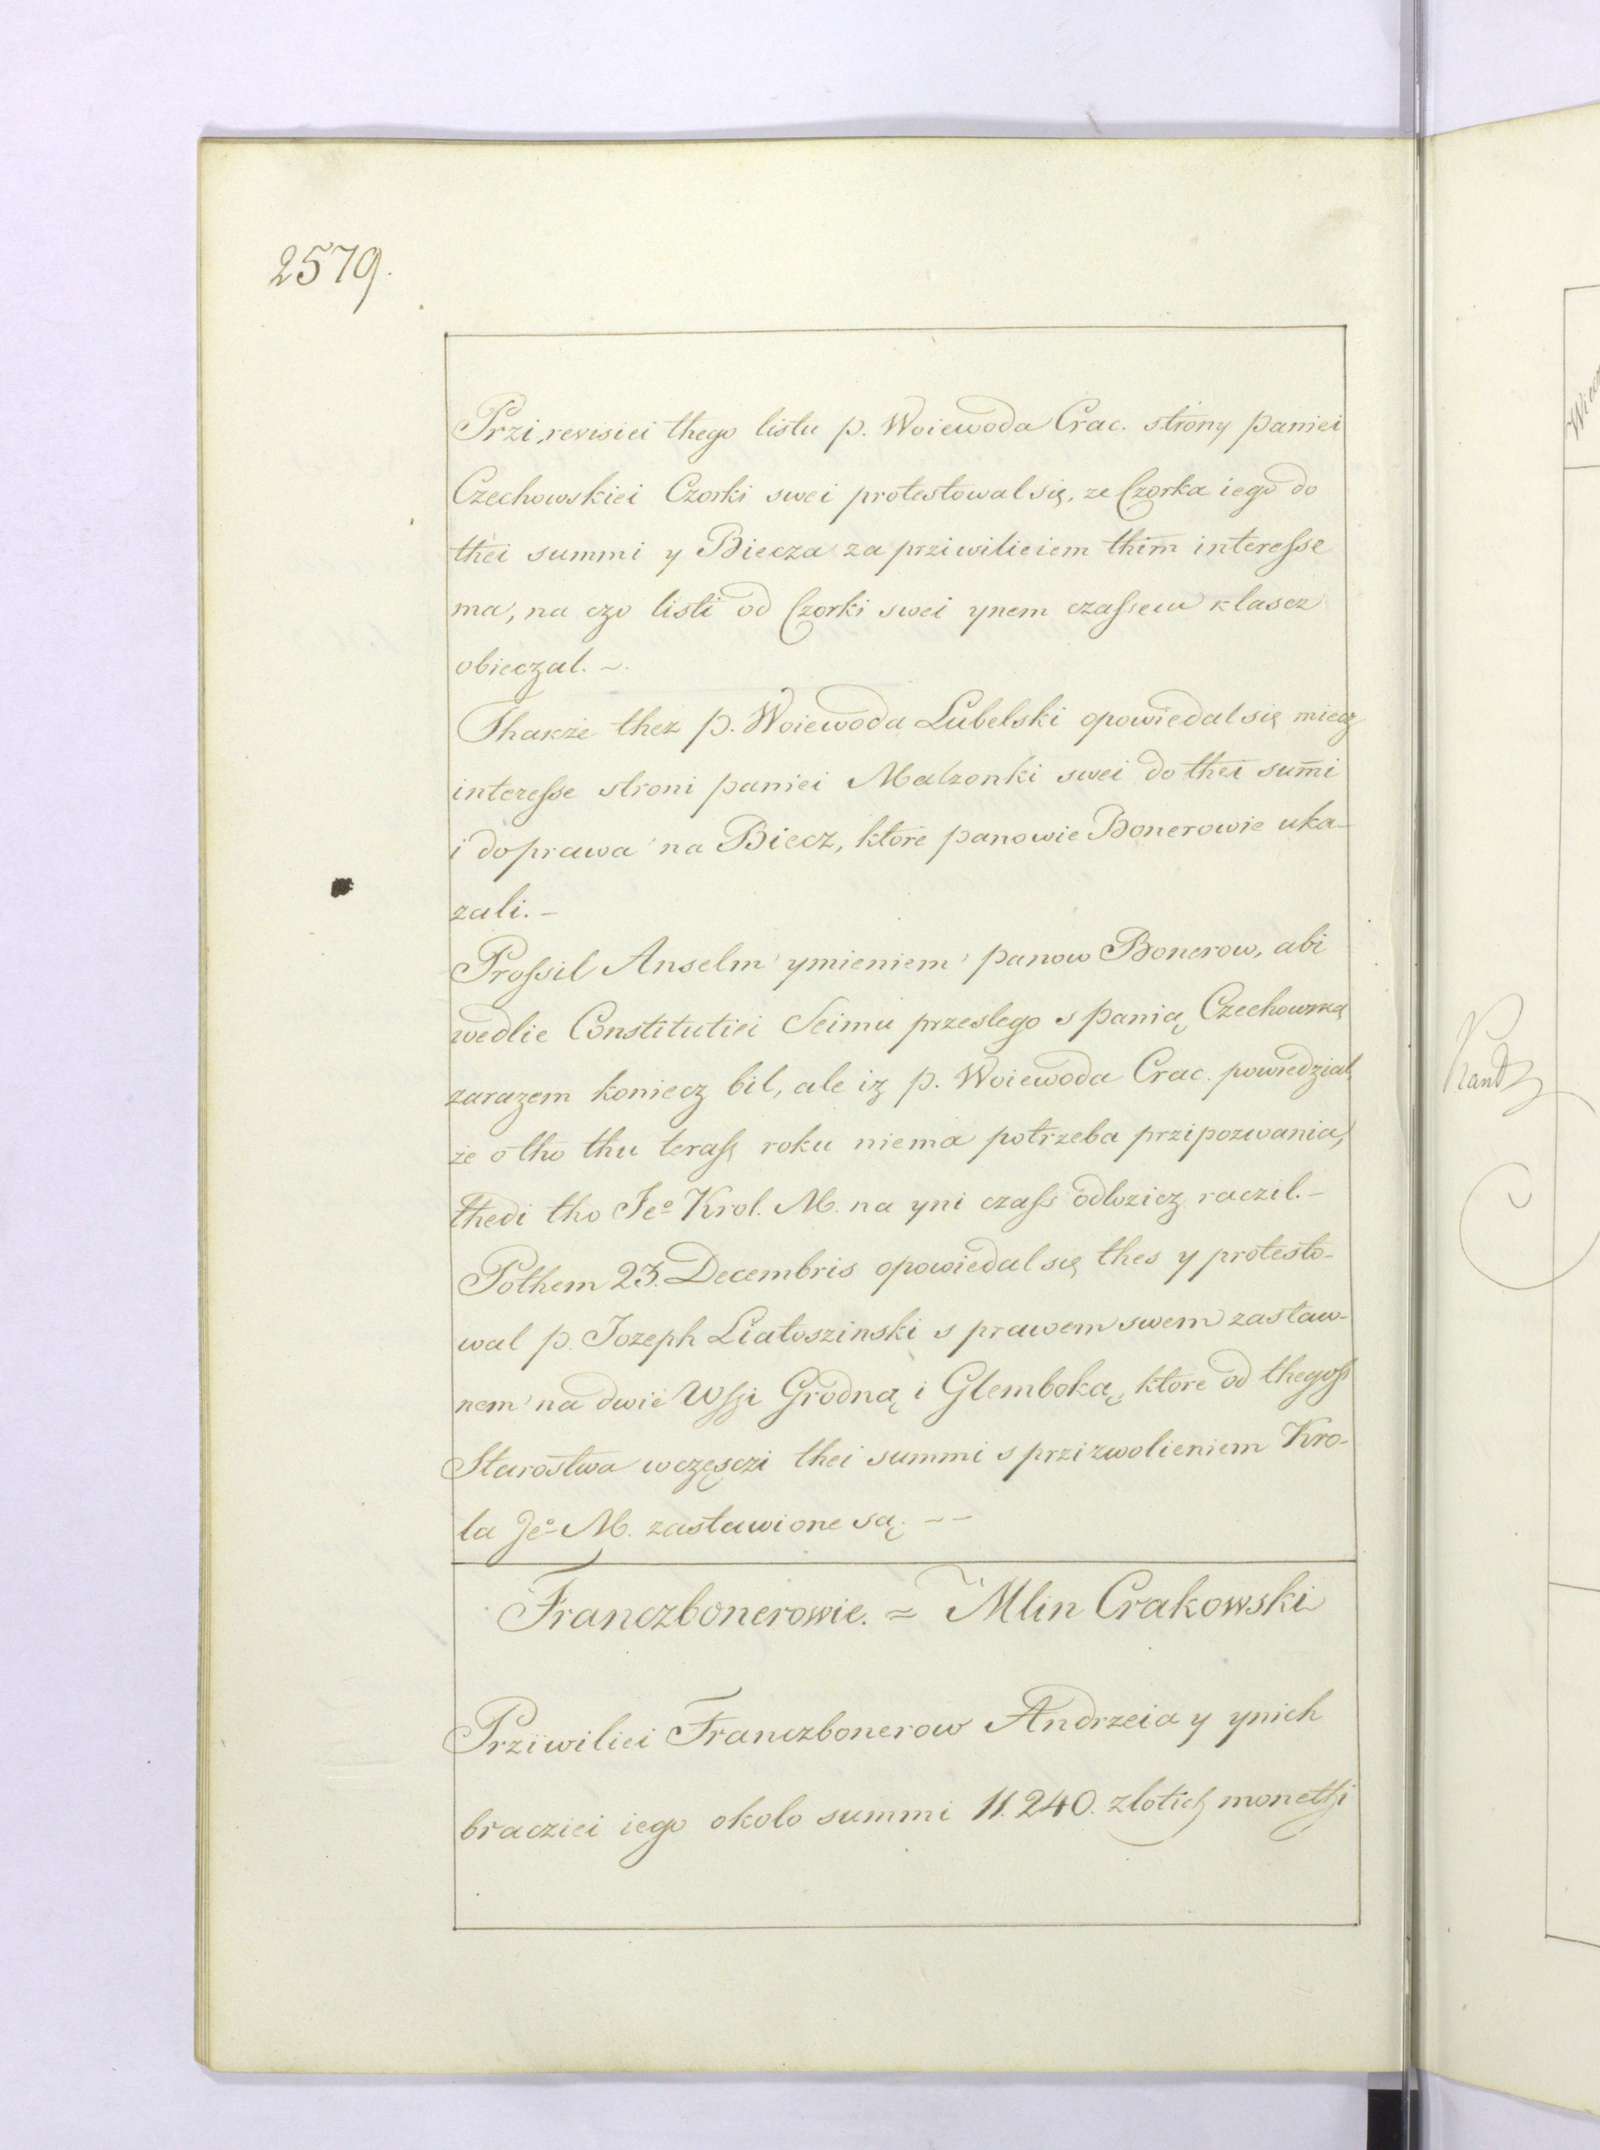 2579.
Przi revisiei thego listu p. Woiewoda Crac. strony paniei
Czechowskiei Czorki swei protestowal się, ze Czorka iego do
thei summi y Biecza za prziwilieiem thim interesse
ma, na czo listi od Czorki swei ynem czassem klascz
obieczal. ~.
Thakze thez p. Woiewoda Lubelski opowiedal się miecz
interesse stroni paniei Malzonki swei do thei sum̄i
i do prawa na Biecz, ktore panowie Bonerowie uka-
zali. –
Prossil Anselm ymieniem panow Bonerow, abi
wedlie Constitutiei Seimu przeslego s panią Czechowską
zarazem koniecz bil, ale iz p. Woiewoda Crac. powiedzial,
że o tho thu terass roku niema potrzeba przipozwania,
thedi tho Jeo Krol. M. na yni czass odlozicz raczil. –
Pothem 23. Decembris opowiedal się thes y protesto-
wal p. Jozeph Liatoszinski s prawem swem zastaw-
nem na dwie Wssi Grodną i Glemboką, ktore od thegoss
Starostwa wczęsczi thei summi s przizwolieniem Kro-
la Jeo M. zastawione są. – –
Franczbonerowie. = Mlin Crakowski
Prziwiliei Franczbonerow Andrzeia y ynich
bracziei iego okolo summi 11.240. zlotich monethi